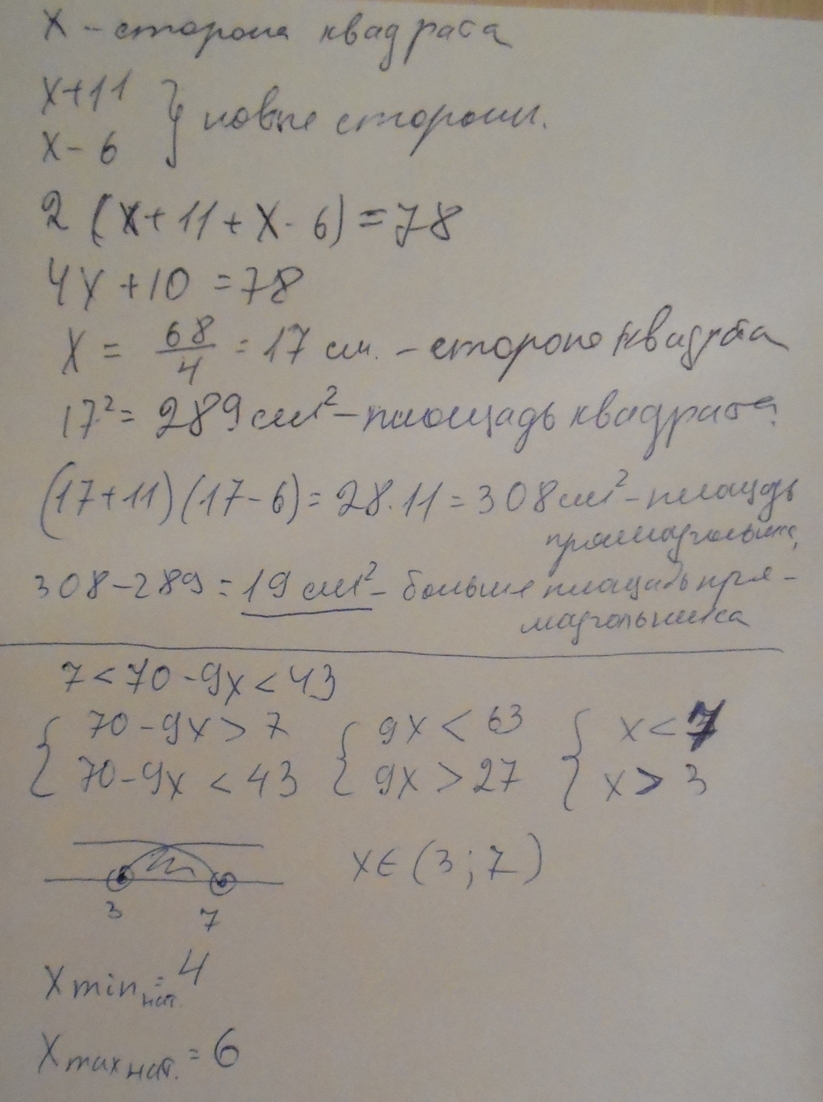 x – сторона квадрата
x+11
x-6 } новые стороны.
2 (x+11+x-6)=78
4x+10=78
x = 68/4 = 17 см. – сторона квадрата
17²= 289 см² – площадь квадрата.
(17+11)(17-6)=28·11=308 см² – площадь
прямоугольника,
308-289=19 см² – больше площадь пря-
моугольника
7<70-9x<43
{ 70-9x>7 { 9x<63 { x<7
{ 70-9x<43 { 9x>27 { x>3
x∈(3;7)
3 7
x min нат. = 4
x max нат. = 6